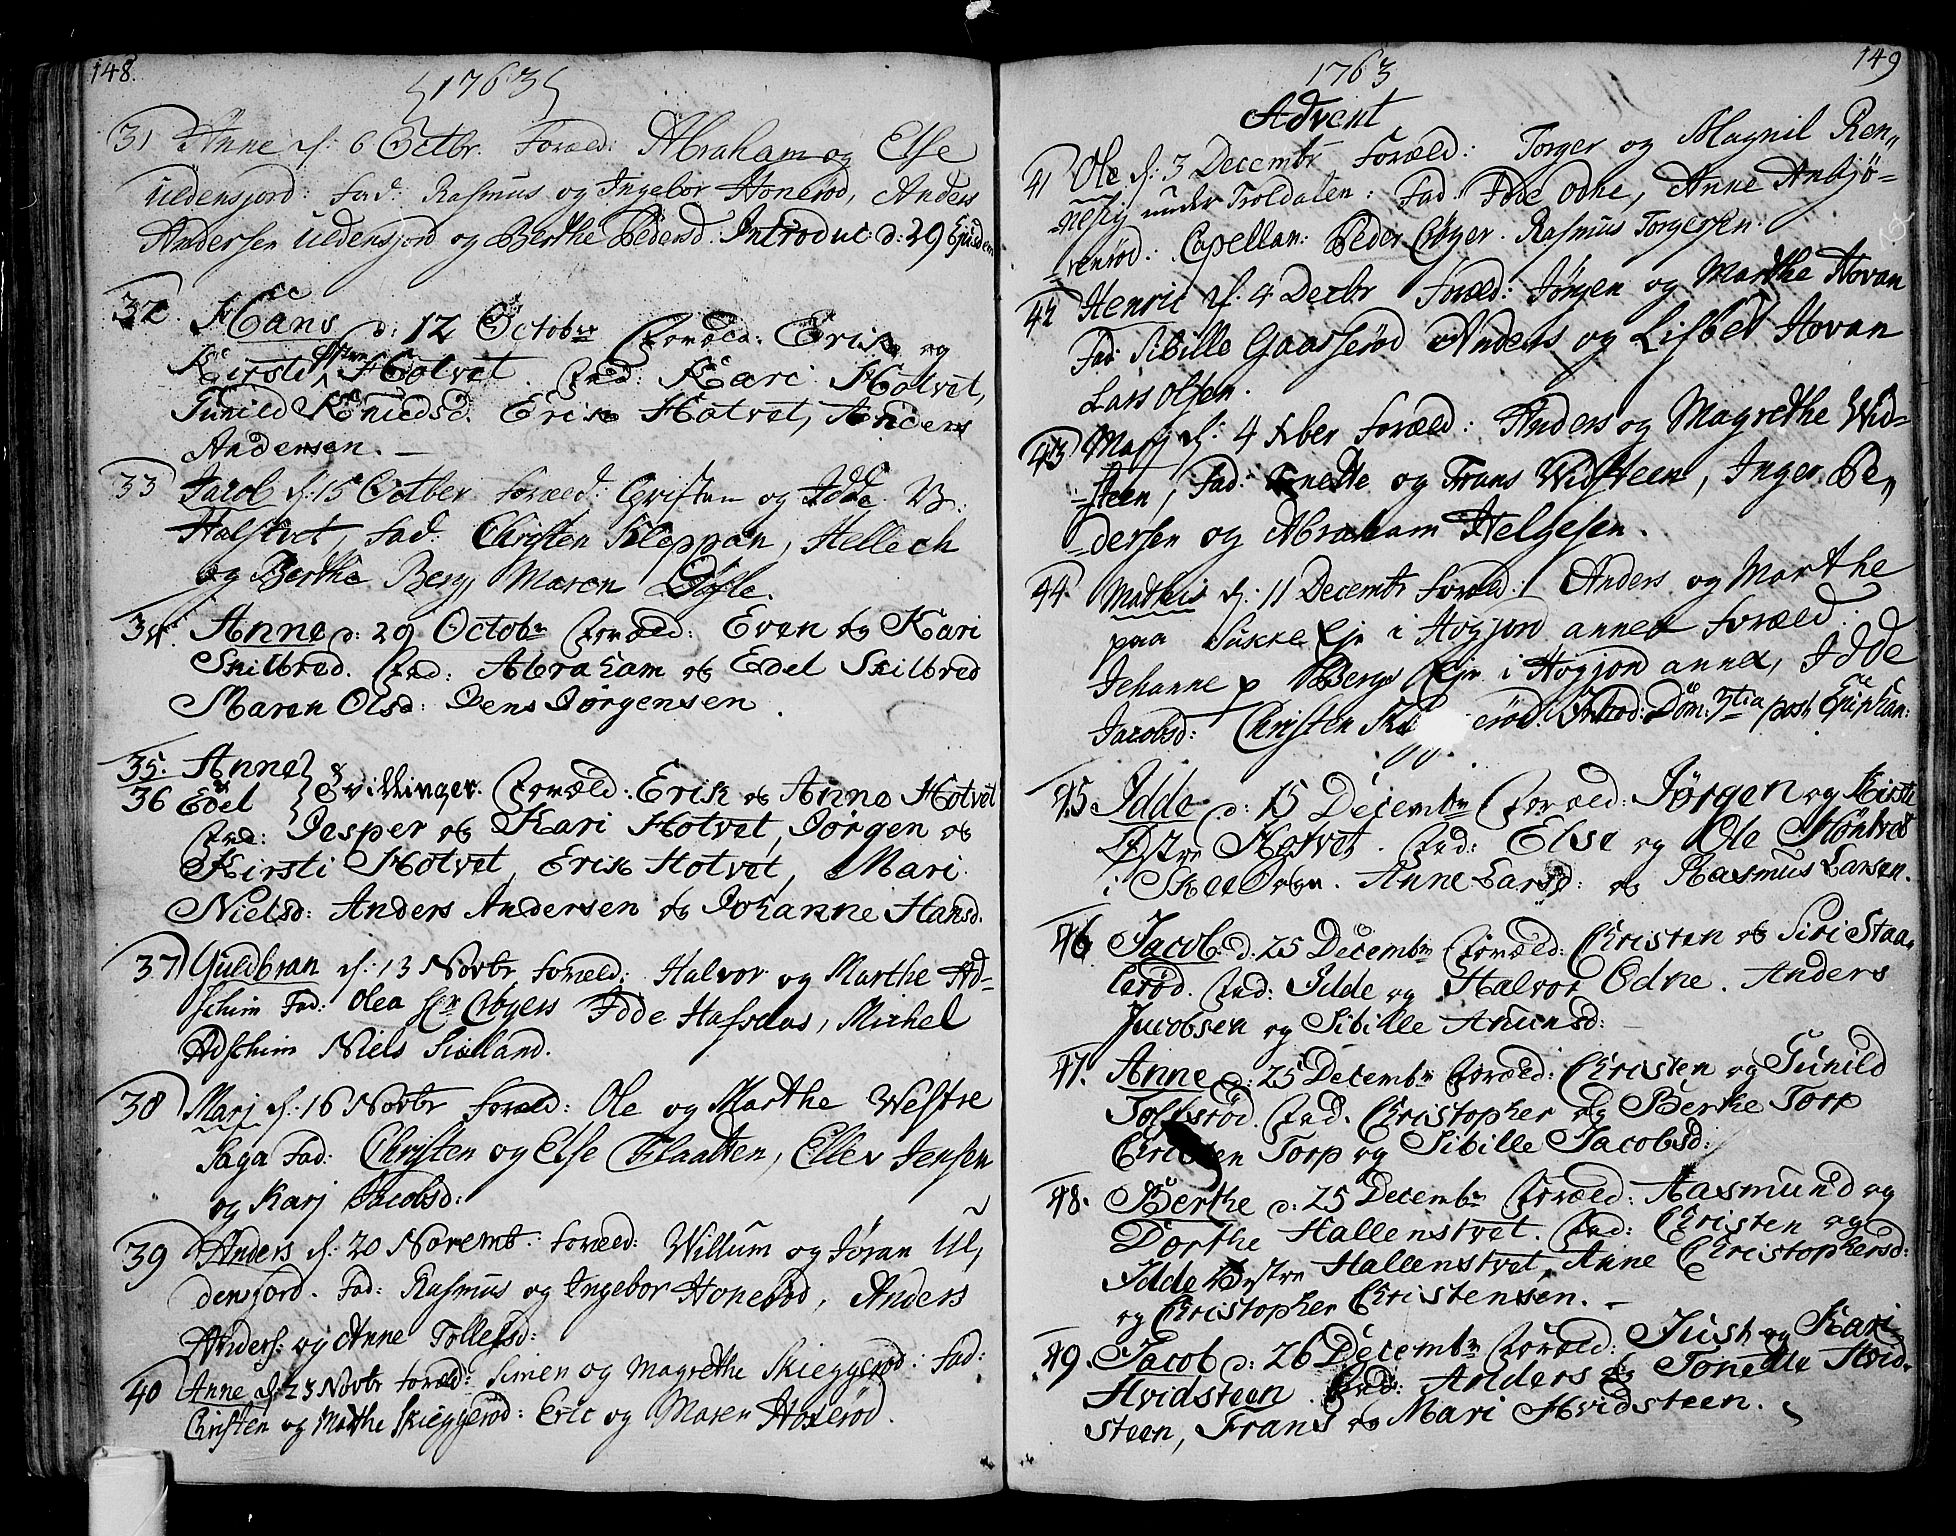 148.
1763
31 Anne d: 6 Octbr. Foræld: Abraham og Else
Uldensjord: Fad: Rasmus og Ingebor Honerød, Anders
Andersen Uldensjord og Berthe Pedersd. Introduc: d: 29 Ejusdem
32. Hans d: 12 Octobr Foræld: Erik og
Kirsti Østre Hotvet. Fad: Kari Hotvet,
Gunild Knudsd. Erik Hotvet, Anders
Andersen. —
33 Jacob d: 15 Octber foræld: Christen og Idde V:
Halstvet, Fad: Christen Kleppan, Hellech
og Berthe Berg, Maren
34. Anne d: 29 Octobr Foræld: Even og Kari
Skilbred. Fad: Abraham og Edel Skilbred
Maren Olsd: Jens Jørgensen.
35. Anne
36 Edel Tvillinger. Foræld: Erik og Anne Hotvet
Fad: Jesper og Kari Hotvet, Jørgen og
Kirsti Hotvet, Erik Hotvet, Mari
Nielsd: Anders Andersen og Johanne Hansd.
37 Guldbran d: 13 Novbr foræld: Halvor og Marthe Ad-
schim Fad: Olea Sr Crøyers Idde Hafsdas, Michel
Adschim Niels Siælland.
38 Marj d: 16 Novbr foræld: Ole og Marthe Westre
Saga Fad: Christen og Else Flaatten, Ellev Jensen
og Karj Jacobsd:
39 Anders d: 20 Novemb. foræld: Willum og Jøran Ul,
densjord. Fad: Rasmus og Ingebor Honerød, Anders
Anders: og Anne Tollefsd:
40 Anne d: 23 Novbr foræld: Simen og Magrethe Skieggerød: Fad:
Christen og Marthe Skieggerød: Eric og Maren Hoxerød.
149
1763
Advent
41 Ole d: 3 Decembr Foræld: Torger og Magnil Ren,
nesig under Troldalen: Fad: Idde Odne, Anne Anbjø-
renrød: Capellan: Peder Crøyer. Rasmus Torgersen.
42 Henric d: 4 Decbr Foræld: Jørgen og Marthe Hovan
Fad: Sibille Gaasserød Anders og Lisbet Hovan
Lars Olsen.
43 Marj d: 4 Xber foræld: Anders og Magrethe Wid-
steen, Fad: Tonette og Frans Widsteen, Inger Pe,
dersen og Abraham Helgesen.
44. Mathis d: 11 Decembr foræld: Anders og Marthe
paa Sukke Eje i Høgjord annex foræld:
Jehanne p Berge Eje i Høgjord annex, Idde
Jacobsd: Christen erød. Introd: Dom: 3tia post Epiphan:
45. Idde d: 15 Decembr Foræld: Jørgen og Kirsti
Østre Hotvet. Fad: Else og Ole Hontvet
i Skee Sogn. Anne Larsd: og Rasmus Larsen.
46 Jacob d: 25 Decembr Foræld: Christen og Siri Staa-
lerød. Fad: Idde og Halvor Odne. Anders
Jacobsen og Sibille Amunsd:
47. Anne d: 25 Decembr Foræld: Christen og Gunild
Tolfsrød. Fad. Christopher og Berthe Torp
Christen Torp og Sibille Jacobsd:
48. Berthe d: 25 Decembr Foræld: Aasmund og
Dorthe Hallenstvet. Fad: Christen og
Idde Østre Hallenstvet, Anne Christophersd:
og Christopher Christensen. —
49. Jacob d: 26 Decembr Foræld: Just og Kari
Hvidsteen. Fad: Anders og Tonette Hvid-
steen, Frans og Mari Hvidsteen.